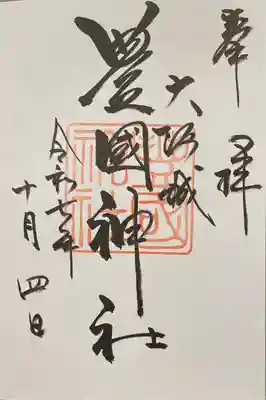 奉拝
大阪城
豊國神社
令和 年
十月四日